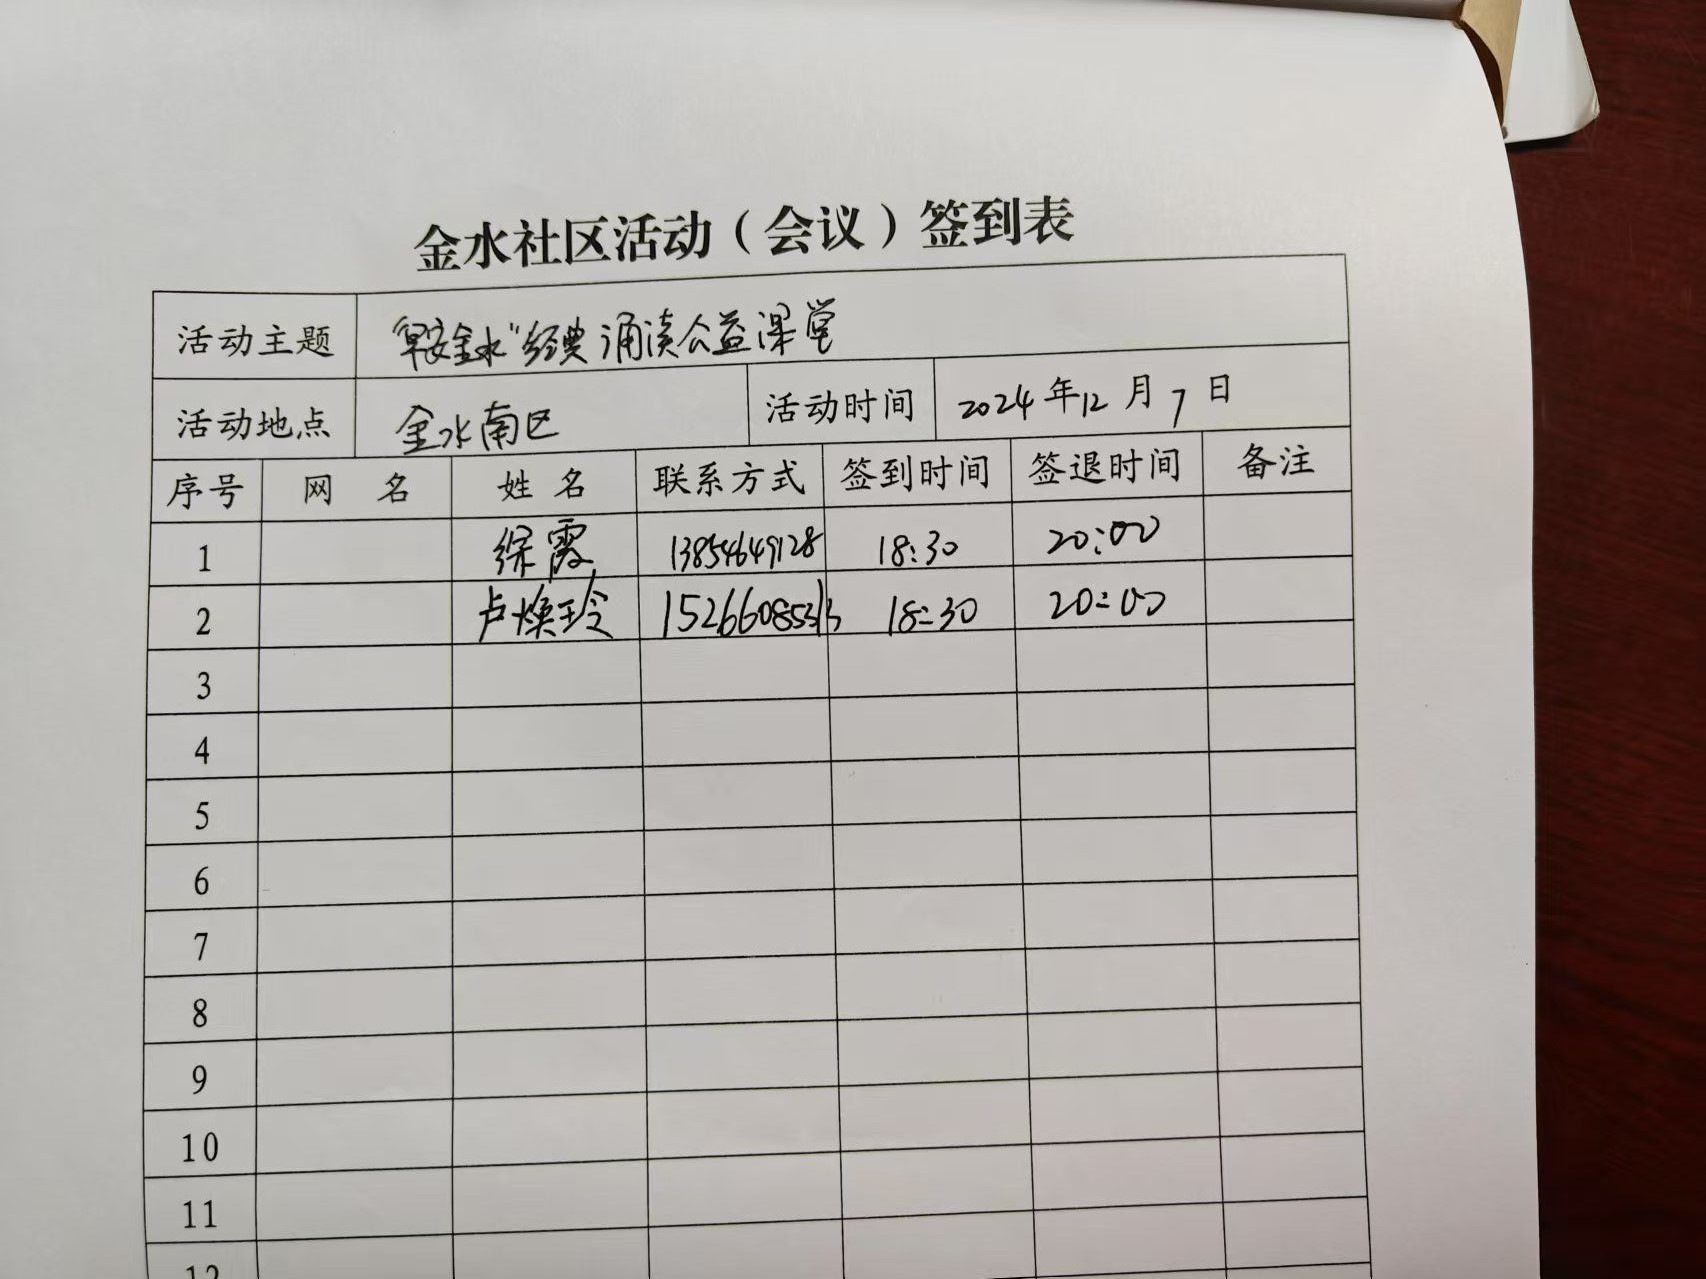 金水社区活动（会议）签到表
活动主题 "早安金水"经典诵读公益课堂
活动地点 金水南区 活动时间 2024年12月7日
序号 网 名 姓 名 联系方式 签到时间 签退时间 备注
1 徐霞 13854649128 18:30 20:00
2 卢焕玲 15266085313 18:30 20:00
3
4
5
6
7
8
9
10
11
12